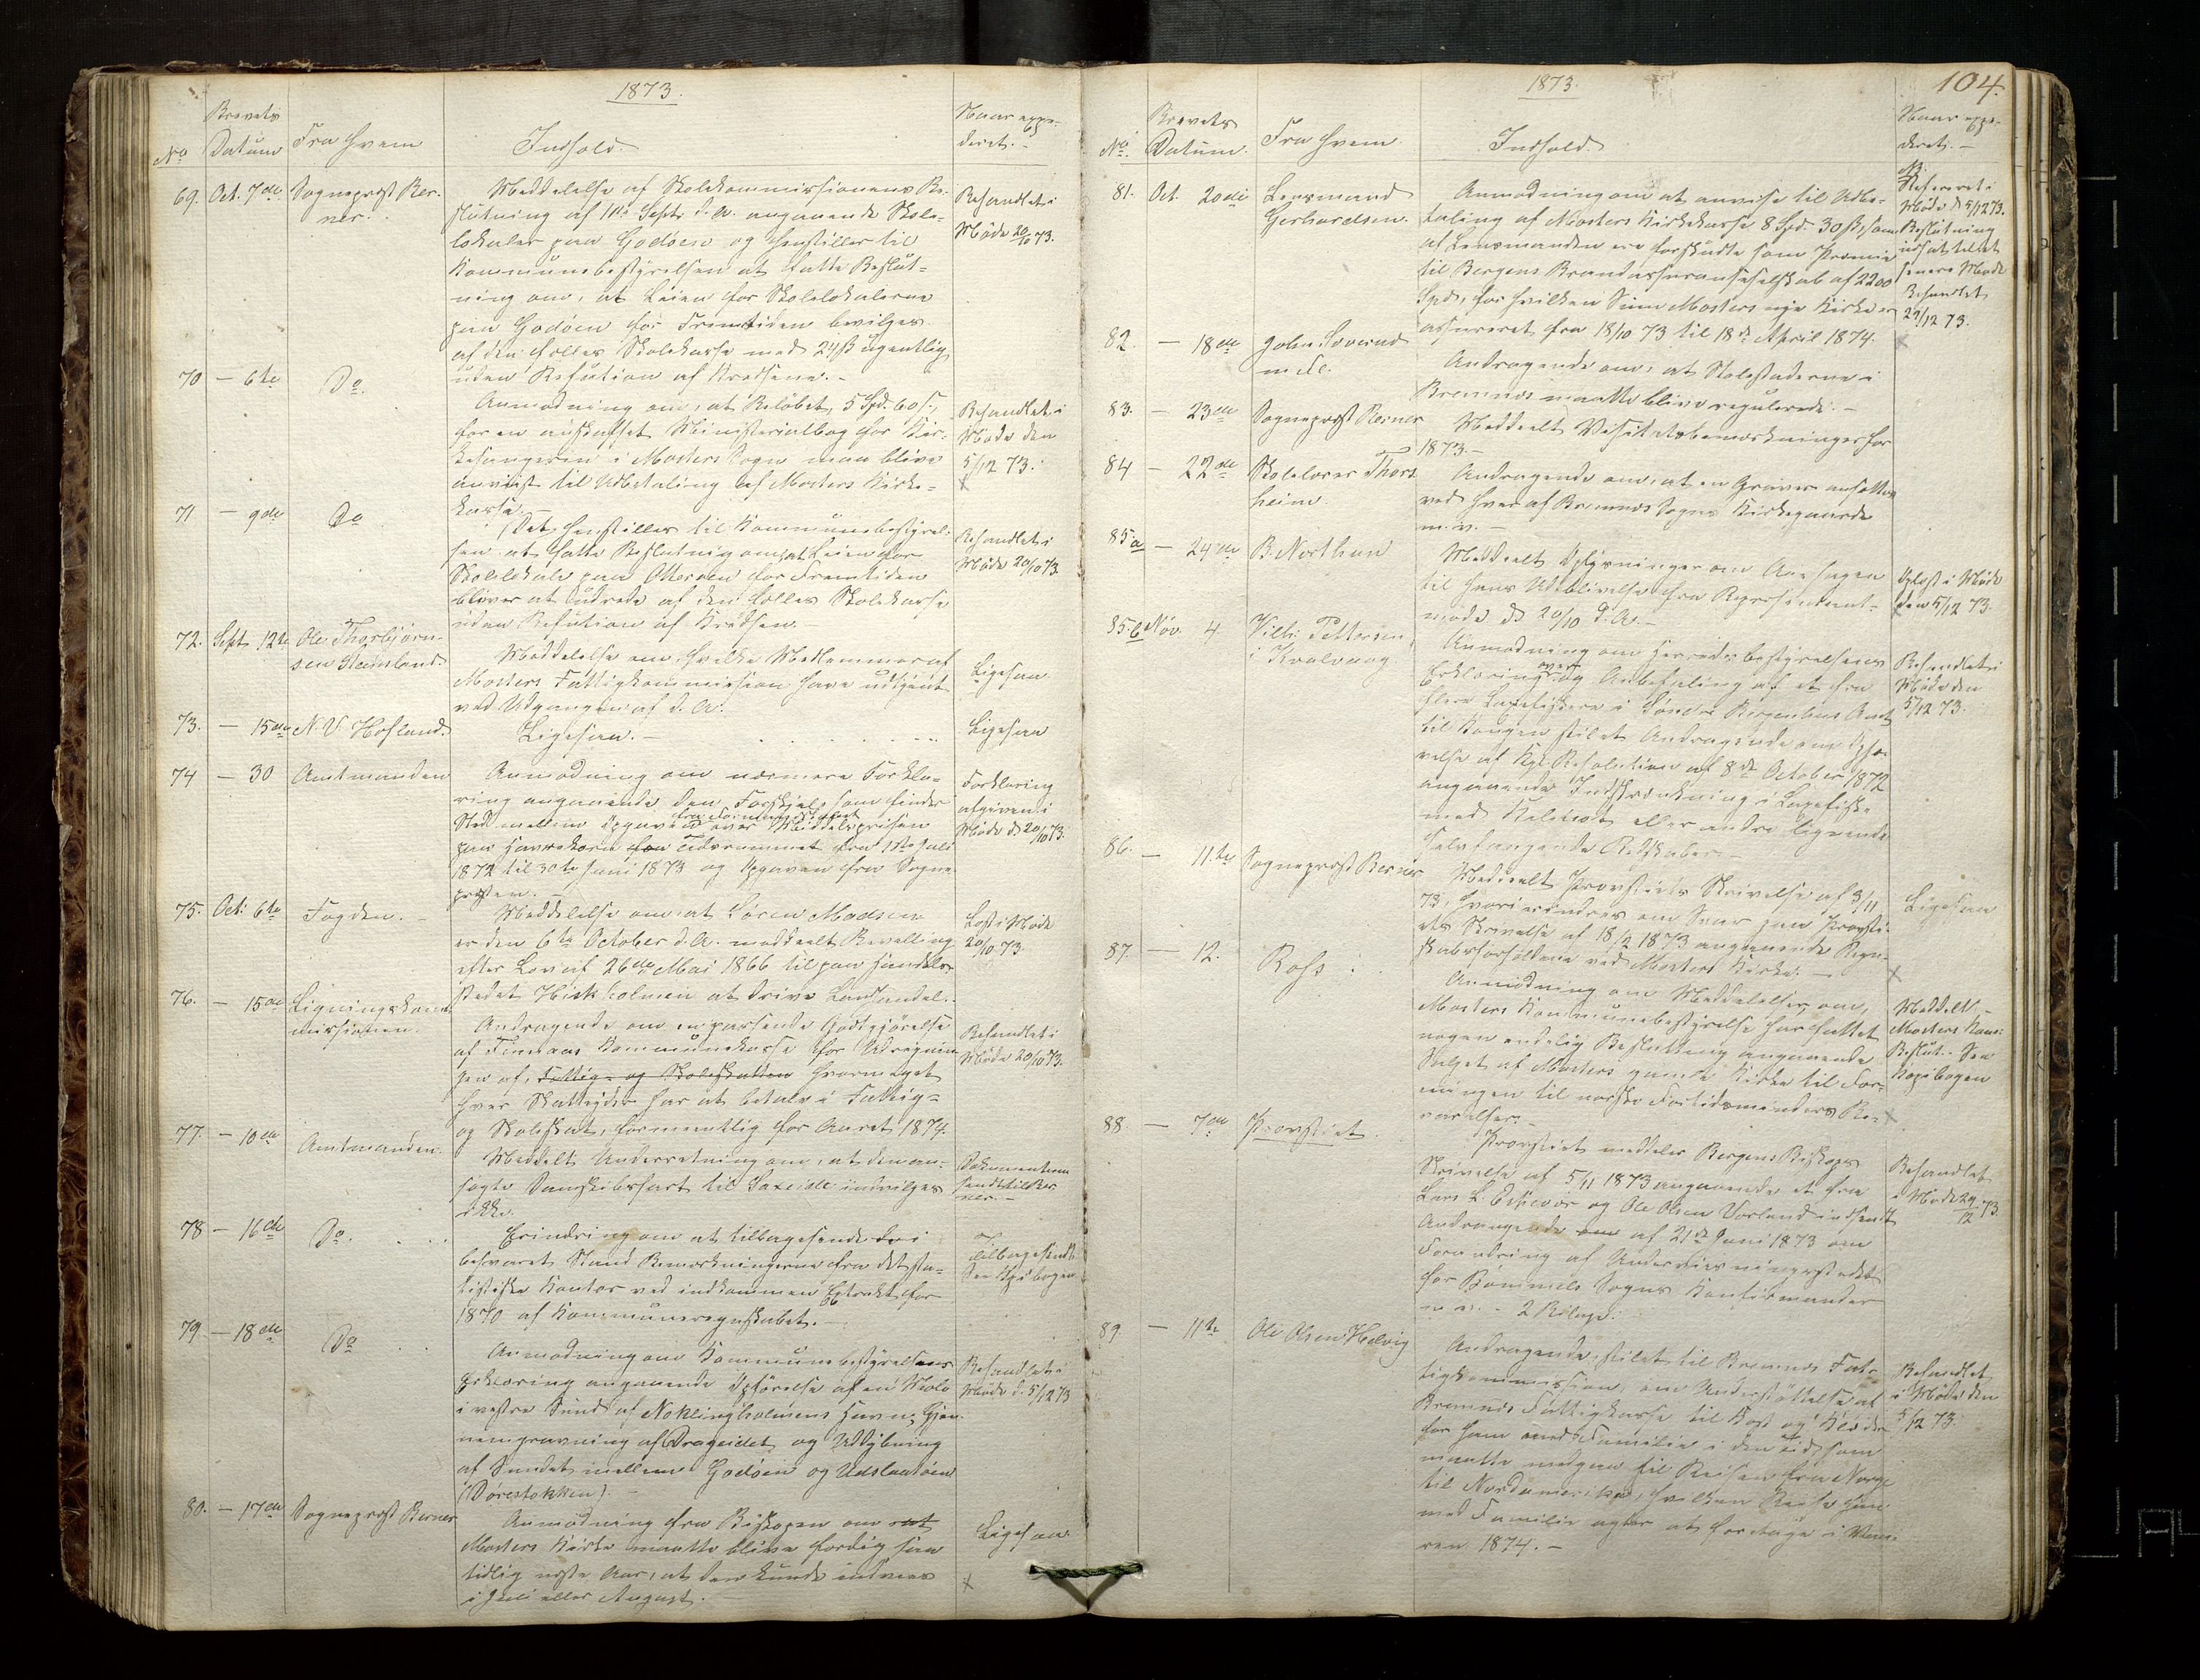 1873.
No
Brevets
Datum
Fra Hvem
Indhold.
Naar expe-
deret. -
69. Oct. 7de Sogneprest Ber-
ner.
Meddelelse af Skolekommissionens Be-
slutning af 11te Septr d. A. angaaende Skole-
lokaler paa Godöen og henstiller til
Kommunebestyrelsen at fatte Beslut-
ning om, at Leien for Skolelokalerne
paa Godöen for Fremtiden bevilges
af den fælles Skolekasse med 24 ß ugentlig
uden Refution af Kredsene. -
Behandlet i
Möde 20/10 73.
70 - 6te Do
Anmodning om, at Belöbet, 5 Spd. 60 ß,
for en anskaffet Ministerialbog for Kir-
kesangeren i Mosters Sogn maa blive
anvist til Udbetaling af Mosters Kirke-
kasse. -
Behandlet i
Möde den
5/12 73.
71 - 9de Do
Det henstilles til Kommunebestyrel-
sen at fatte Beslutning om, at Leien for
Skolelokale paa Otteröen for Fremtiden
bliver at udrede af den fælles Skolekasse
uden Refution af Kredsen. -
Behandlet i
Möde 20/10 73.
72. Sept. 12te Ole Thorbjörn-
sen Steinsland.
Meddelelse om, hvilke Medlemmer af
Mosters Fattigkommission have udtjent
ved Udgangen af d. A.
Ligesaa
73. - 15de N. V. Hofland.
Ligesaa. -
Ligesaa
74 - 30 Amtmanden
Anmodning om nærmere Forkla-
ring angaaende den Forskjel, som finder
Sted mellem Opgaven fra Formandskabet over Middelprisen
paa Havrekorn for Tidsrummet fra 1ste Juli
1872 til 30te Juni 1873 og Opgaven fra Sogne-
presten. -
Forklaring
afgiven i
Möde d. 20/10 73.
75. Oct. 6te Fogden. -
Meddelelse om, at Sören Madsen
er den 6te October d. A. meddelt Bevilling
efter Lov af 26de Mai 1866 til paa Handels-
stedet Hiskholmen at drive Landhandel.
Læst i Möde
20/10 73.
76. - 15de Ligningskom-
missionen.
Andragende om en passende Godtgjörelse
af Finnaas Kommunekasse for Udregnin-
gen af, Fattig- og Skoleskatten hvormeget
hver Skatteyder har at betale i Fattig-
og Skoleskat, formentlig for Aaret 1874.
Behandlet i
Möde 20/10 73.
77. - 10de Amtmanden.
Meddelt Underretning om, at den an-
sögte Dampskibsfart til indvilges
ikke.
Dokumenterne
sendt til Ber-
ner. -
78 - 16de Do.
Erindring om at tilbagesende de i
besvaret Stand Bemærkningerne fra det sta-
tistiske Kontor ved indkommen Extrakt for
1870 af Kommuneregnskabet. -
Tilbagesendt
Se Kopibogen
79 - 18de Do
Anmodning om Kommunebestyrelsens
Erklæring angaaende Opförelse af en Molo
i vestre Sund af Noklingholmens Havn, Gjen-
nemgravning af Drageidet og Uddybning
af Sundet mellem Godöen og Udslaatöen
(Dörestokken). -
Behandlet i
Möde d. 5/12 73
80. - 17de Sogneprest Berner
Anmodning fra Biskopen om at
Mosters Kirke maatte blive færdig saa
tidlig næste Aar, at den kunde indvies
i Juli eller August. -
Ligesaa
x
104.
1873.
No.
Brevets
Datum.
Fra Hvem.
Indhold.
Naar expe-
deret. -
81. Oct. 20de Lensmand
Gerhardsen.
Anmodning om at anvise til Udbe-
taling af Mosters Kirkekasse 8 Spd. 30 ß, som
af Lensmanden ere forskudte som Præmie
til Bergens Brandassuranceselskab af 2200
Spd., for hvilken Sum Mosters nye Kirke er
assureret fra 18/10 73 til 18de April 1874.
Refereret i
Möde d. 5/12 73.
Beslutning
udsat til et
senere Möde
Behandlet
29/12 73.
x
82. - 18de John
m. fl.
Andragende om, at Skolestederne i
Bremnes maatte blive regulerede. -
83. - 23de Sogneprest Berner
Meddeelt Visitatsbemærkninger for
1873. -
84 - 22de Skolelærer Thors
heim.
Andragende om, at en Graver ansættes
ved hver af Bremnes Sogns Kirkegaarde
m. v. -
85a - 24de B. Northun
Meddeelt Oplysninger om Aarsagen
til hans Udeblivelse fra Repræsentant-
möde d. 20/10 d. A. -
Oplæst i Möde
den 5/12 73.
85b Nov. 4 Vilh. Pettersen
i Kvalvaag
Anmodning om Herredsbestyrelsens
Erklæring over og Anbefaling af et fra
flere Laxefiskere i Söndre Bergenhus Amt
til Kongen stilet Andragende om Ophæ-
velse af Kgl. Resolution af 8de October 1872
angaaende Indskrænkning i Laxefiske
med Kilenot eller andre lignende
selvfangende Redskaber. -
Behandlet i
Möde den
5/12 73.
86. - 11te Sogneprest Berner
Meddeelt Provstiets Skrivelse af 3/11
73, hvori erindres om Svar paa Provsti-
ets Skrivelse af 18/2 1873 angaaende Regn-
skabsforholdene ved Mosters Kirke. -
Ligesaa
x
87. - 12. Ross
Anmodning om Meddelelse, om
Mosters Kommunebestyrelse har fattet
nogen endelig Beslutning angaaende
Salget af Mosters gamle Kirke til For-
eningen til norske Fortidsminders Be-
varelse. -
Meddelt
Mosters Kom:
Beslut. See
Kopibogen
x
88. - 7de Provstiet
Provstiet meddeler Bergens Biskops
Skrivelse af 5/11 1873 angaaende et fra
Lars L. Eskevog og Ole Olsen Vorland indsendt
Andragende om af 21de Juni 1873 om
Forandring af Underviisningsstedet
for Bömmels Sogns Konfirmander
m. v. - 2 Bilage.
Behandlet
i Möde 29/12 73.
89 - 11te Ole Olsen Helvig
Andragende, stilet til Bremnes Fat-
tigkommission, om Understöttelse af
Bremnes Fattigkasse til Kost og Klæder
for ham med Familie i den Tid, som
maatte medgaa til Reisen fra Norge
til Nordamerika, hvilken Reise han
med Familie agter at foretage i Vaa-
ren 1874. -
Behandlet
i Möde den
5/12 73.